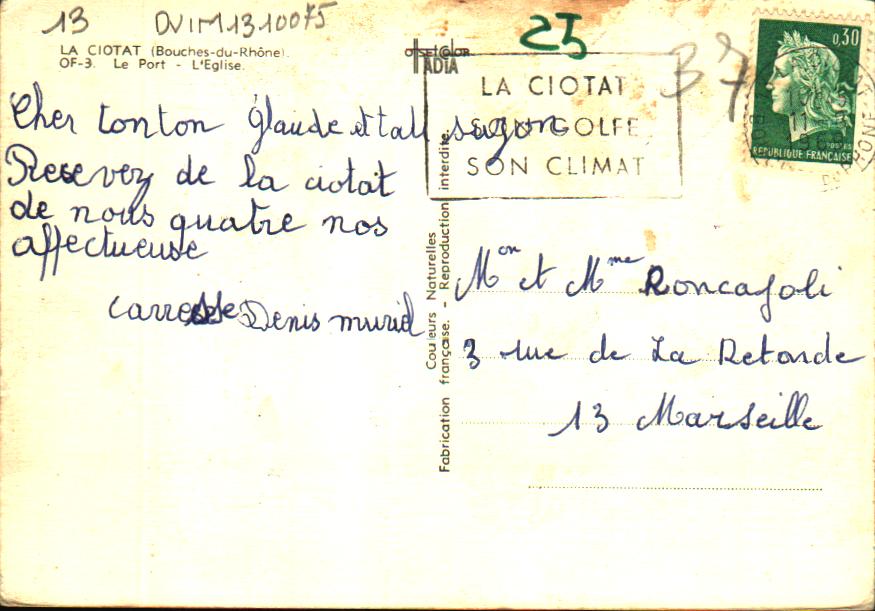 13 DVIM1310075
LA CIOTAT (Bouches-du-Rhône).
OF-3. Le Port - L'Eglise.
offset color
ADIA
25
B 7
0,30
POSTES
REPUBLIQUE FRANÇAISE
LA CIOTAT
SON GOLFE
SON CLIMAT
Cher tonton Glaude et tati suzon
Recevez de la ciotat
de nous quatre nos
affectueuse
carresse Denis muriel
Couleurs Naturelles
Fabrication française. - Reproduction interdite.
Mon et Mme Roncagoli
3 rue de La Retonde
13 Marseille